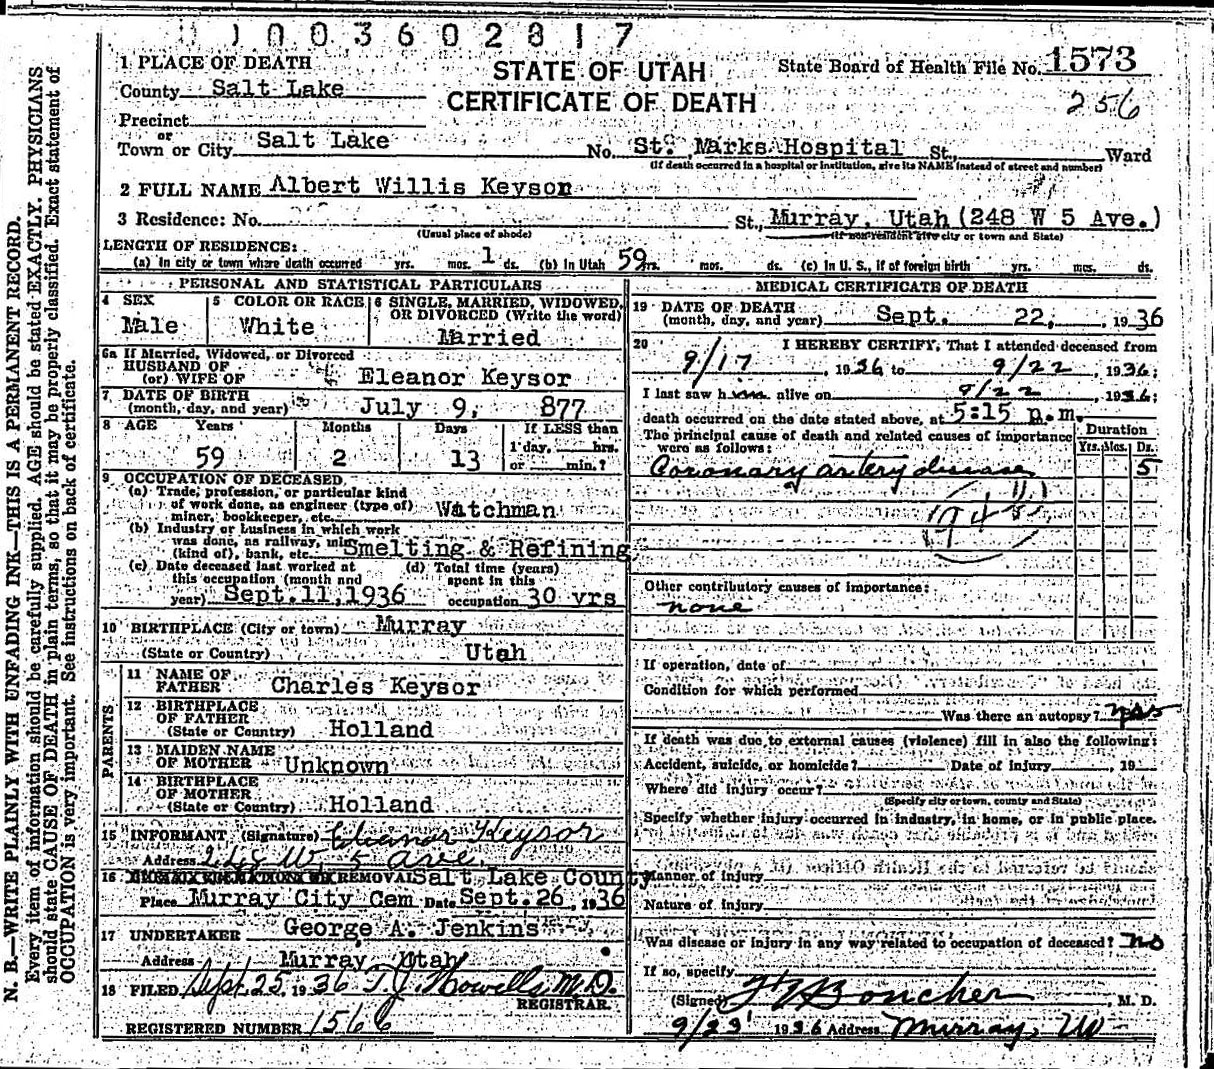 1003602817
1 PLACE OF DEATH
STATE OF UTAH
State Board of Health File No. 1573
County Salt Lake
CERTIFICATE OF DEATH
256
Precinct
or
Town or City Salt Lake No. St. Marks Hospital St., Ward
(If death occurred in a hospital or institution, give its NAME instead of street and number)
2 FULL NAME Albert Willis Keysor
3 Residence: No. St., Murray, Utah (248 W 5 Ave.)
(Usual place of abode) (If non-resident give city or town and State)
LENGTH OF RESIDENCE:
(a) In city or town where death occurred yrs. mos. 1 ds. (b) In Utah 59 yrs. mos. ds. (c) In U. S., if of foreign birth yrs. mos. ds.
PERSONAL AND STATISTICAL PARTICULARS
4 SEX
Male
5 COLOR OR RACE
White
6 SINGLE, MARRIED, WIDOWED, OR DIVORCED (Write the word)
Married
6a If Married, Widowed, or Divorced
HUSBAND OF
(or) WIFE OF Eleanor Keysor
7 DATE OF BIRTH
(month, day, and year) July 9, 877
8 AGE Years Months Days If LESS than
1 day, hrs.
59 2 13 or min.?
9 OCCUPATION OF DECEASED
(a) Trade, profession, or particular kind
of work done, as engineer (type of)
miner, bookkeeper, etc. Watchman
(b) Industry or business in which work
was done, as railway, mine
(kind of), bank, etc. Smelting & Refining
(c) Date deceased last worked at
this occupation (month and
year) Sept. 11, 1936
(d) Total time (years)
spent in this
occupation 30 yrs
10 BIRTHPLACE (City or town) Murray
(State or Country) Utah
PARENTS
11 NAME OF
FATHER Charles Keysor
12 BIRTHPLACE
OF FATHER
(State or Country) Holland
13 MAIDEN NAME
OF MOTHER Unknown
14 BIRTHPLACE
OF MOTHER
(State or Country) Holland
15 INFORMANT (Signature) Eleanor Keysor
Address 248 W. 5 Ave.
16 REMOVAL Salt Lake County
Place Murray City Cem Date Sept. 26, 1936
17 UNDERTAKER George A. Jenkins
Address Murray, Utah
18 FILED Sept. 25, 1936 T. J. Howells, M.D.
REGISTRAR.
REGISTERED NUMBER 1566
MEDICAL CERTIFICATE OF DEATH
19 DATE OF DEATH
(month, day, and year) Sept. 22, 1936
20 I HEREBY CERTIFY, That I attended deceased from
9/17, 1936 to 9/22, 1936;
I last saw him alive on 9/22, 1936;
death occurred on the date stated above, at 5:15 p.m.
The principal cause of death and related causes of importance
were as follows:
Duration
Yrs. Mos. Ds.
Coronary artery disease 5
Other contributory causes of importance:
none
If operation, date of
Condition for which performed
Was there an autopsy? yes
If death was due to external causes (violence) fill in also the following:
Accident, suicide, or homicide? Date of injury , 19
Where did injury occur?
(Specify city or town, county and State)
Specify whether injury occurred in industry, in home, or in public place.
Manner of injury
Nature of injury
Was disease or injury in any way related to occupation of deceased? no
If so, specify
(Signed) Boucher, M. D.
9/23 1936 Address Murray, U
N. B.—WRITE PLAINLY WITH UNFADING INK—THIS IS A PERMANENT RECORD.
Every item of information should be carefully supplied. AGE should be stated EXACTLY. PHYSICIANS
should state CAUSE OF DEATH in plain terms, so that it may be properly classified. Exact statement of
OCCUPATION is very important. See instructions on back of certificate.